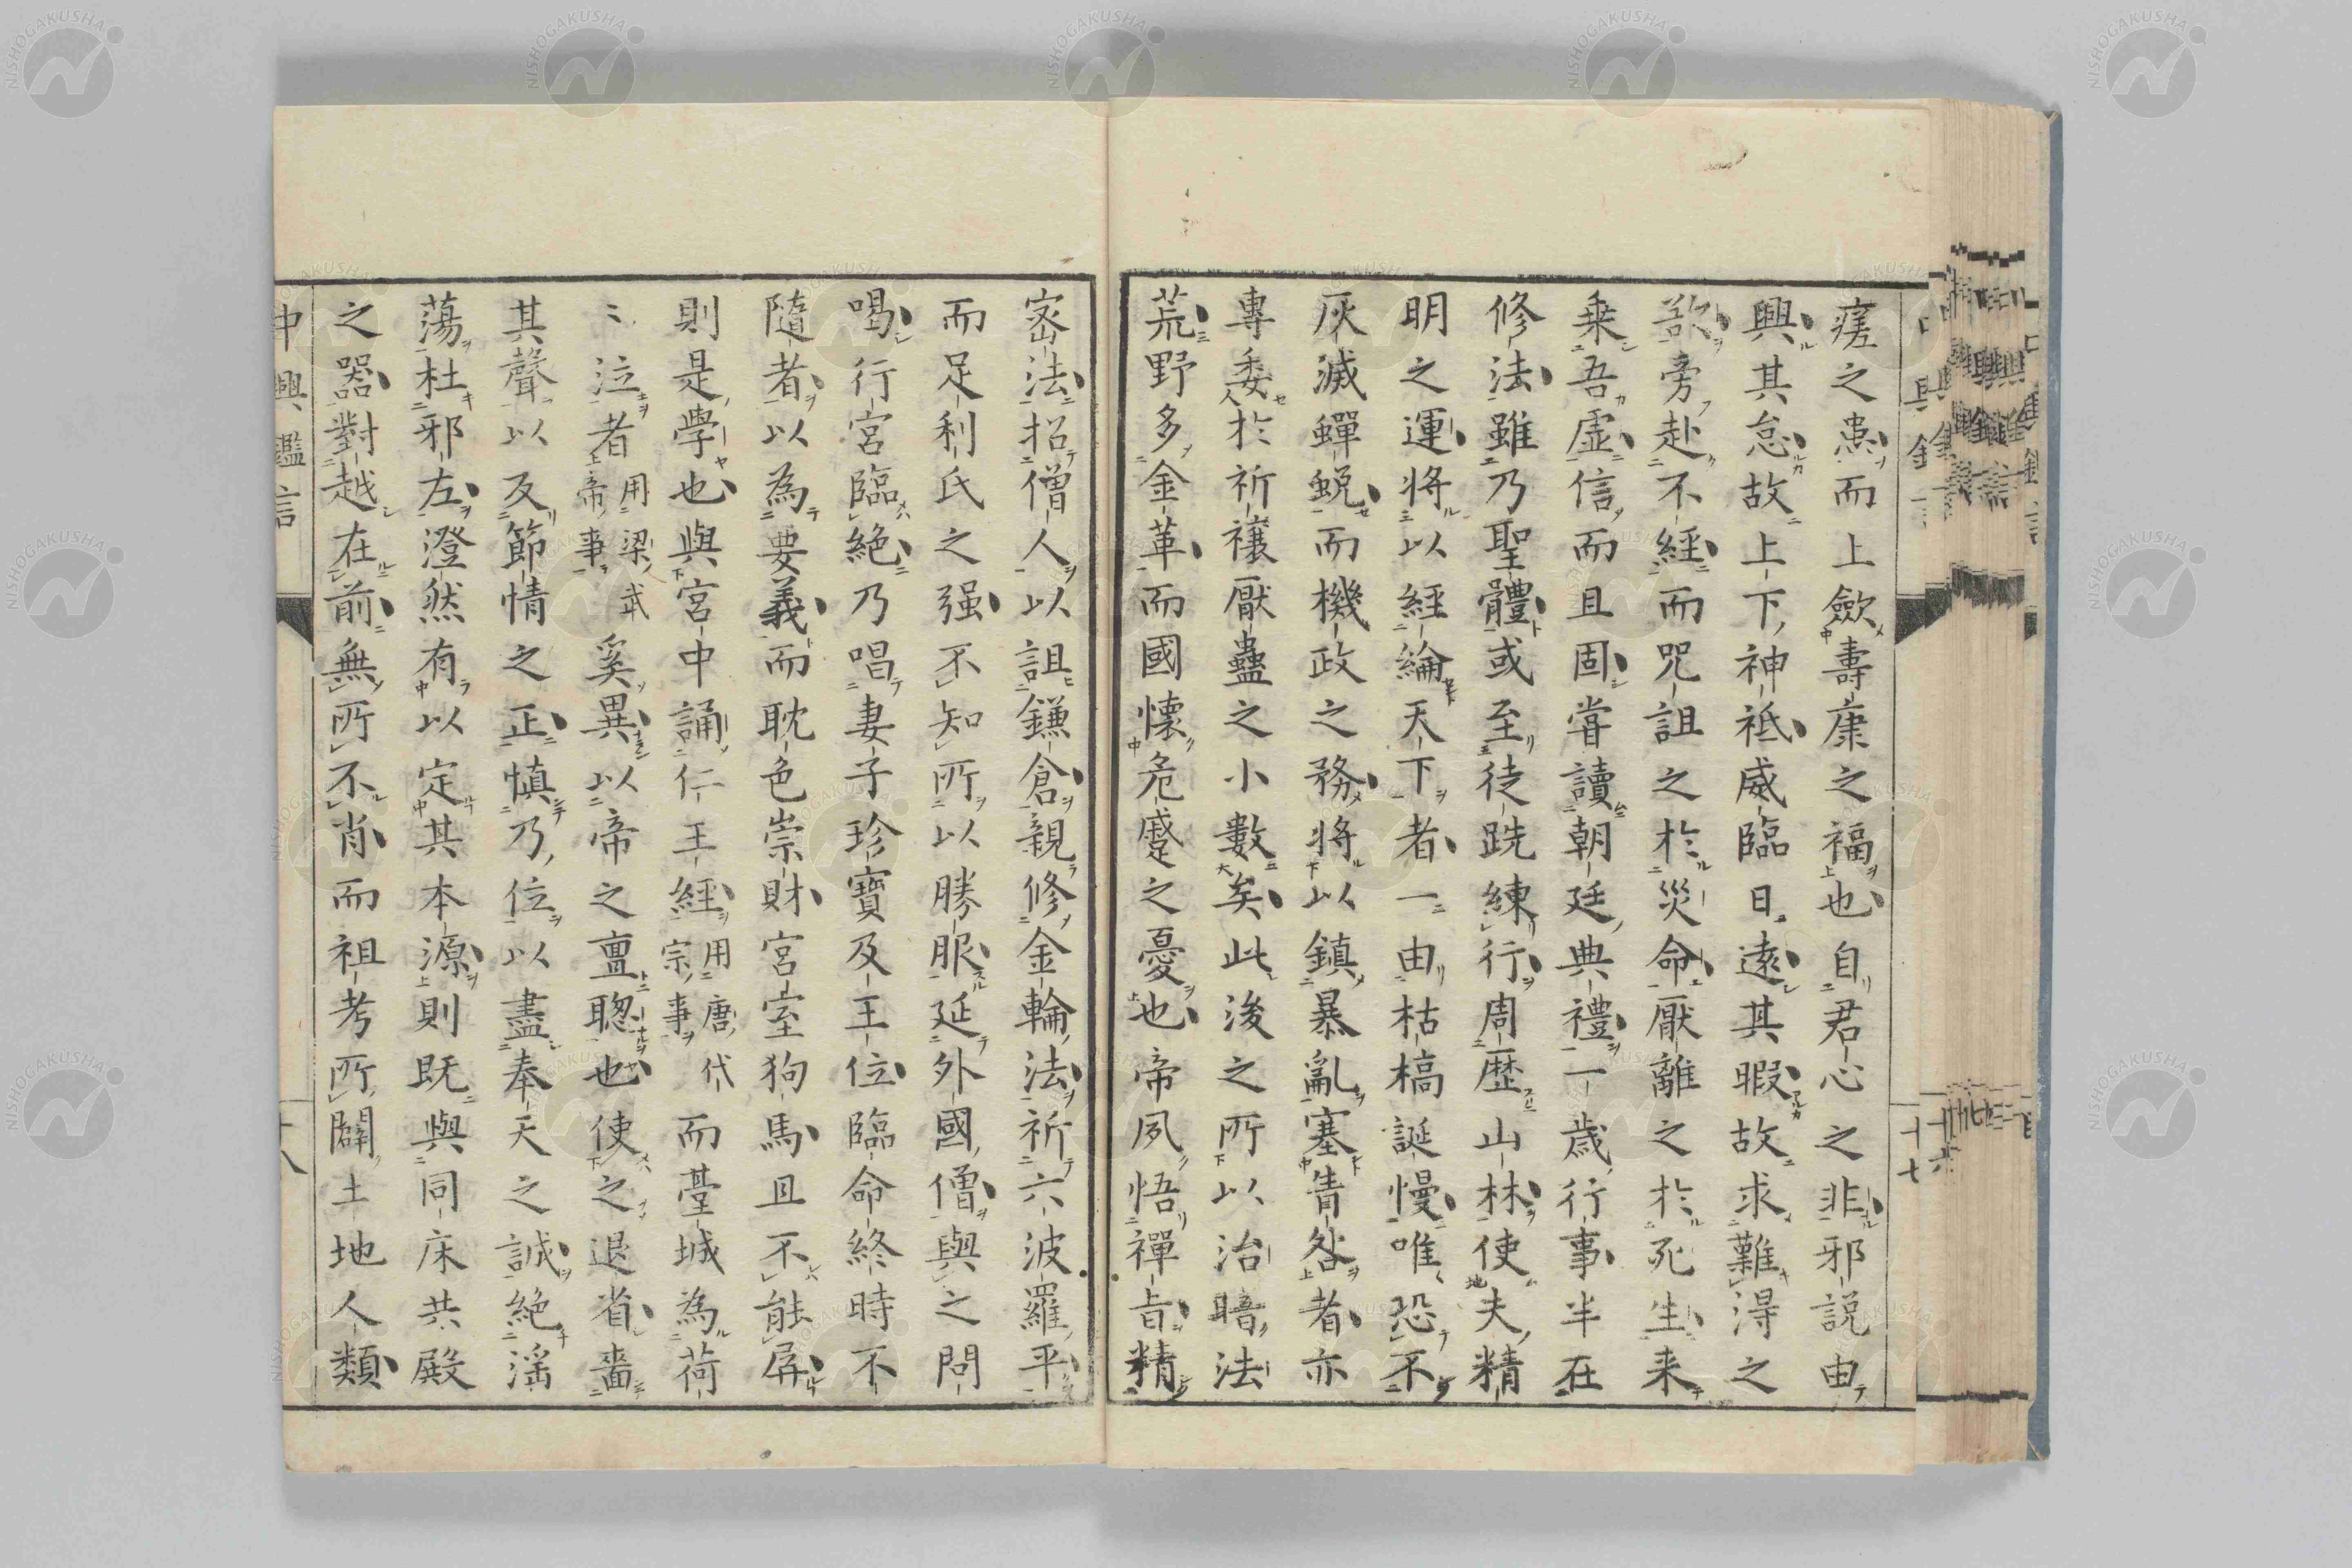 瘥之患而上歛壽康之福也自君心之非邪説由
興其怠故上下神祗威臨日遠其暇故求難得之
欲旁赴不經而咒詛之於災命厭離之於死生来
乗吾虚信而且固嘗讀朝廷典禮一歳行事半在
修法雖乃聖體或至徒跣練行周歴山林使夫精
明之運將以經綸天下者一由枯槁誕慢唯恐不
灰滅蟬蛻而機政之務將以鎮暴亂塞眚咎者亦
專委於祈禳厭蠱之小數矣此後之所以治暗法
荒野多金革而國懷危蹙之憂也帝夙悟禪旨精
密法招僧人以詛鎌倉親修金輪法祈六波羅平
而足利氏之强不知所以勝服延外國僧與之問
喝行宮臨絶乃唱妻子珍寶及王位臨命終時不
隨者以為要義而耽色崇財宮室狗馬且不能屏
則是學也與宮中誦仁王經用唐代宗事而臺城為荷
〻泣者用梁武帝事奚異以帝之亶聰也使之退省嗇
其聲以及節情之正慎乃位以盡奉天之誠絶滛
蕩杜邪左澄然有以定其本源則既與同床共殿
之器對越在前無所不肖而祖考所闢土地人類
中興鑑言
十八
十七
NISHOGAKUSHA